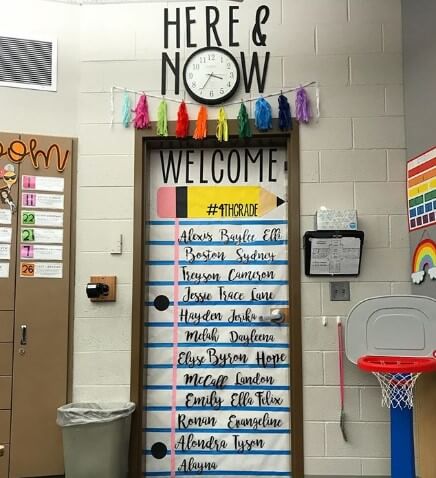 HERE &
NOW
WELCOME
#4THGRADE
Alexis Baylee Elli
Boston Sydney
Treyson Cameron
Jessie Trace Lane
Hayden Jerika
Melah Dayleena
Elyse Byron Hope
McCall Landon
Emily Ella Felix
Ronan Evangeline
Alondra Tyson
Alayna
oom
11
22
21
7
26